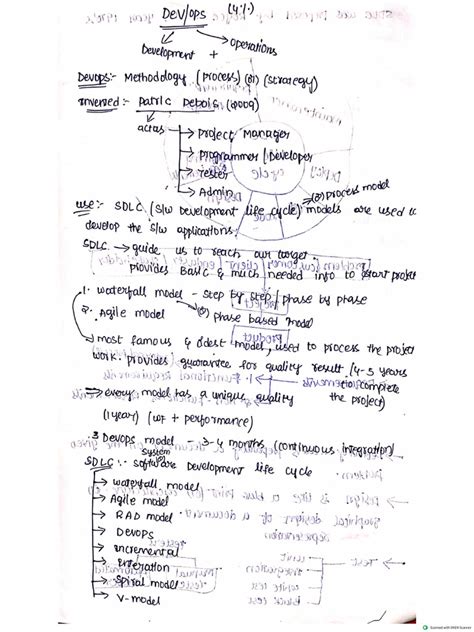 DEV/OPS (4%)
Development + operations
Devops:- Methodology (process) (or) (strategy)
invented:- Patric Debois (2009)
actas → Project Manager
→ programmer / Developer
→ Tester
→ Admin
(or) process model
use:- SDLC (S/w Development life cycle) models are used to
develop the S/w applications.
SDLC → guide us to reach our target
provides basic & much needed info to start project
1. waterfall model - step by step / phase by phase
(or) phase based model
2. Agile model
→ most famous & oldest model, used to process the project
work. provides guarantee for quality result. (4-5 years
to complete
the project)
⇒ every model has a unique quality
(1 year) (WF + performance)
3 Devops model - 3-4 months (continuous integration)
system
(or)
SDLC :- software Development life cycle
→ waterfall model
→ Agile model
→ RAD model
→ DEVOPS
→ incremental
→ integration
→ Spiral model
→ V-model
Scanned with OKEN Scanner